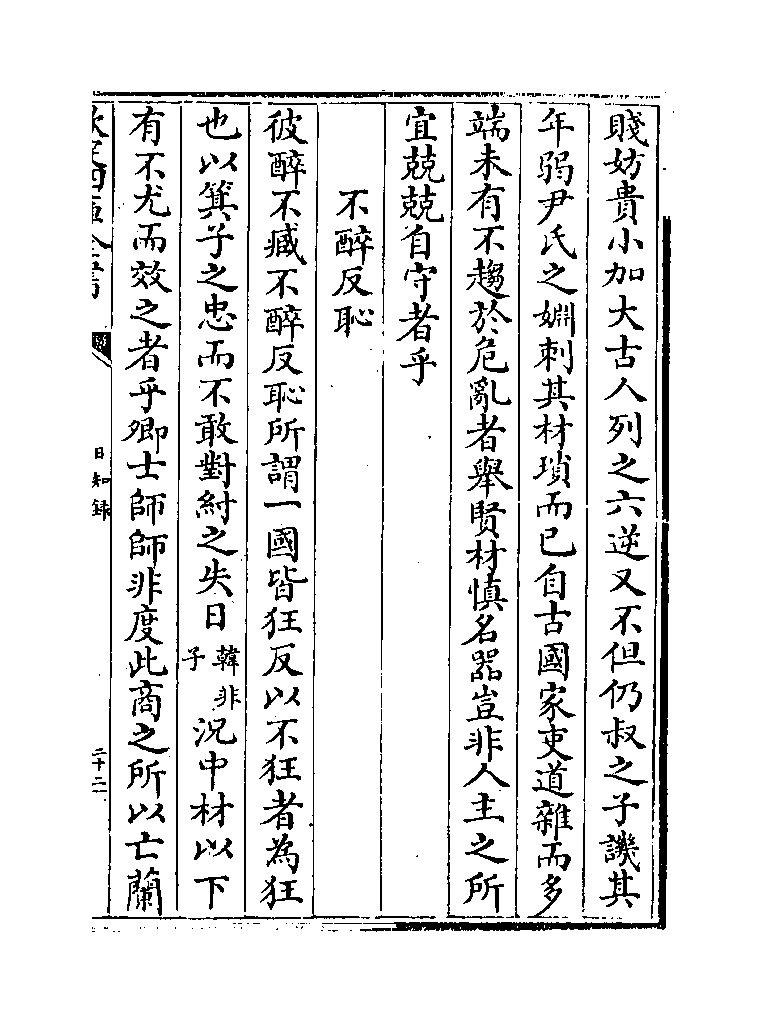 賤妨貴小加大古人列之六逆又不但仍叔之子譏其
年弱尹氏之姻刺其材瑣而已自古國家吏道雜而多
端未有不趨於危亂者舉賢材慎名器豈非人主之所
宜兢兢自守者乎
不醉反恥
彼醉不臧不醉反恥所謂一國皆狂反以不狂者為狂
也以箕子之忠而不敢對紂之失日韓非子況中材以下
有不尤而效之者乎卿士師師非度此商之所以亡蘭
欽定四庫全書
日知錄
二十二